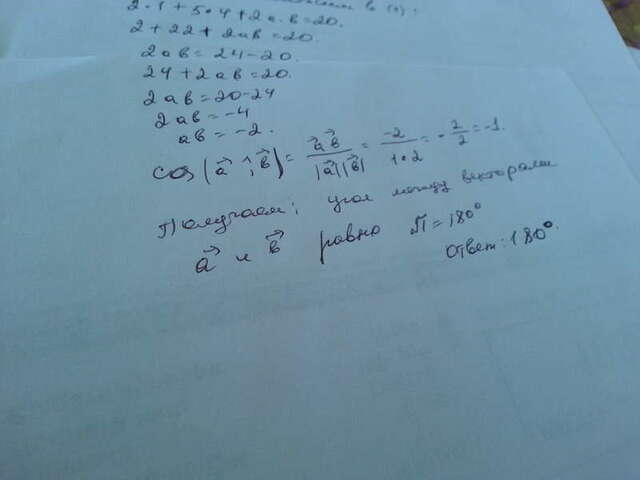 в (1).
2·1+5·4+2a·в=20.
2+22+2ав=20.
2ав=24-20.
24+2ав=20.
2ав=20-24
2ав=-4
ав=-2.
cos(a⃗,^в⃗)=a⃗в⃗/|a⃗||в⃗|=-2/1·2=-2/2=-1.
Получаем; угол между векторами
a⃗ и в⃗ равно π=180°
Ответ: 180°.